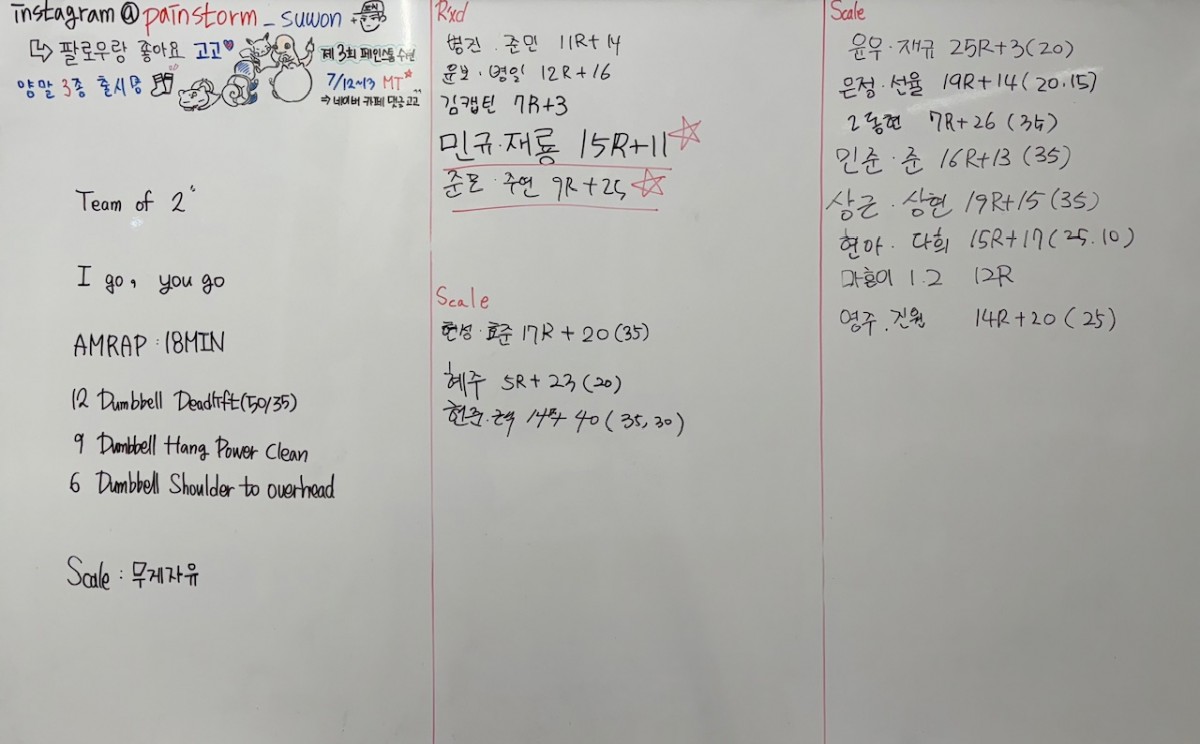 instagram @painstorm_suwon
↳ 팔로우랑 좋아요 고고♥
양말 3종 출시중
제 3회 페인스톰 수원
7/12~13 MT
⇒ 네이버 카페 댓글 고고
Team of 2
I go, you go
AMRAP : 18MIN
12 Dumbbell Deadlift(50/35)
9 Dumbbell Hang Power Clean
6 Dumbbell Shoulder to overhead
Scale : 무게자유
R'xd
병진 · 준민 11R+14
윤보 · 명일 12R+16
김캡틴 7R+3
민규 · 재룡 15R+11 ☆
준모 · 주연 9R+25 ☆
Scale
현성 · 효준 17R + 20 (35)
혜주 5R + 23 (20)
40 (35, 30)
Scale
윤우 · 재규 25R+3(20)
은정 · 선율 19R+14(20.15)
2동현 7R+26 (35)
민준 · 준 16R+13 (35)
상근 · 상현 19R+15 (35)
현아 · 다희 15R+17 (25.10)
마흥이 1.2 12R
영주 . 진원 14R+20 (25)